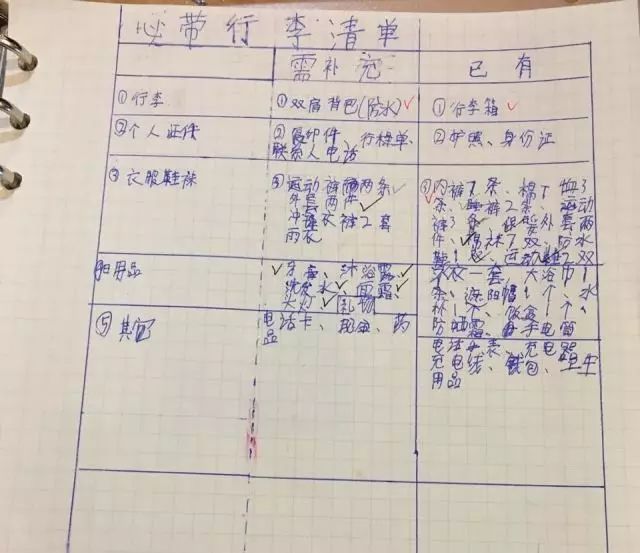 必带行李清单
需补充
已有
①行李
①双肩背巴(防水)
①行李箱
②个人证件
②复印件、行程单、
联系人电话
②护照、身份证
③衣服鞋袜
③运动裤两条
外套两件
冲锋衣裤2套
雨衣
③内裤7条、棉T恤3
条、睡裤2条、运动
裤3条、保暖外套两
件、棉袜7双、防水
鞋1双、运动鞋2双
泳衣一套、大浴巾1
条、遮阳帽1个、水
杯1个、饭盒1个、
防晒霜、手电筒
日用品
牙膏、沐浴露、
洗发水、面霜、
头灯、礼物
⑤其它
电话卡、现金、药
品
电话手表、充电器
充电线、钱包、卫生
用品